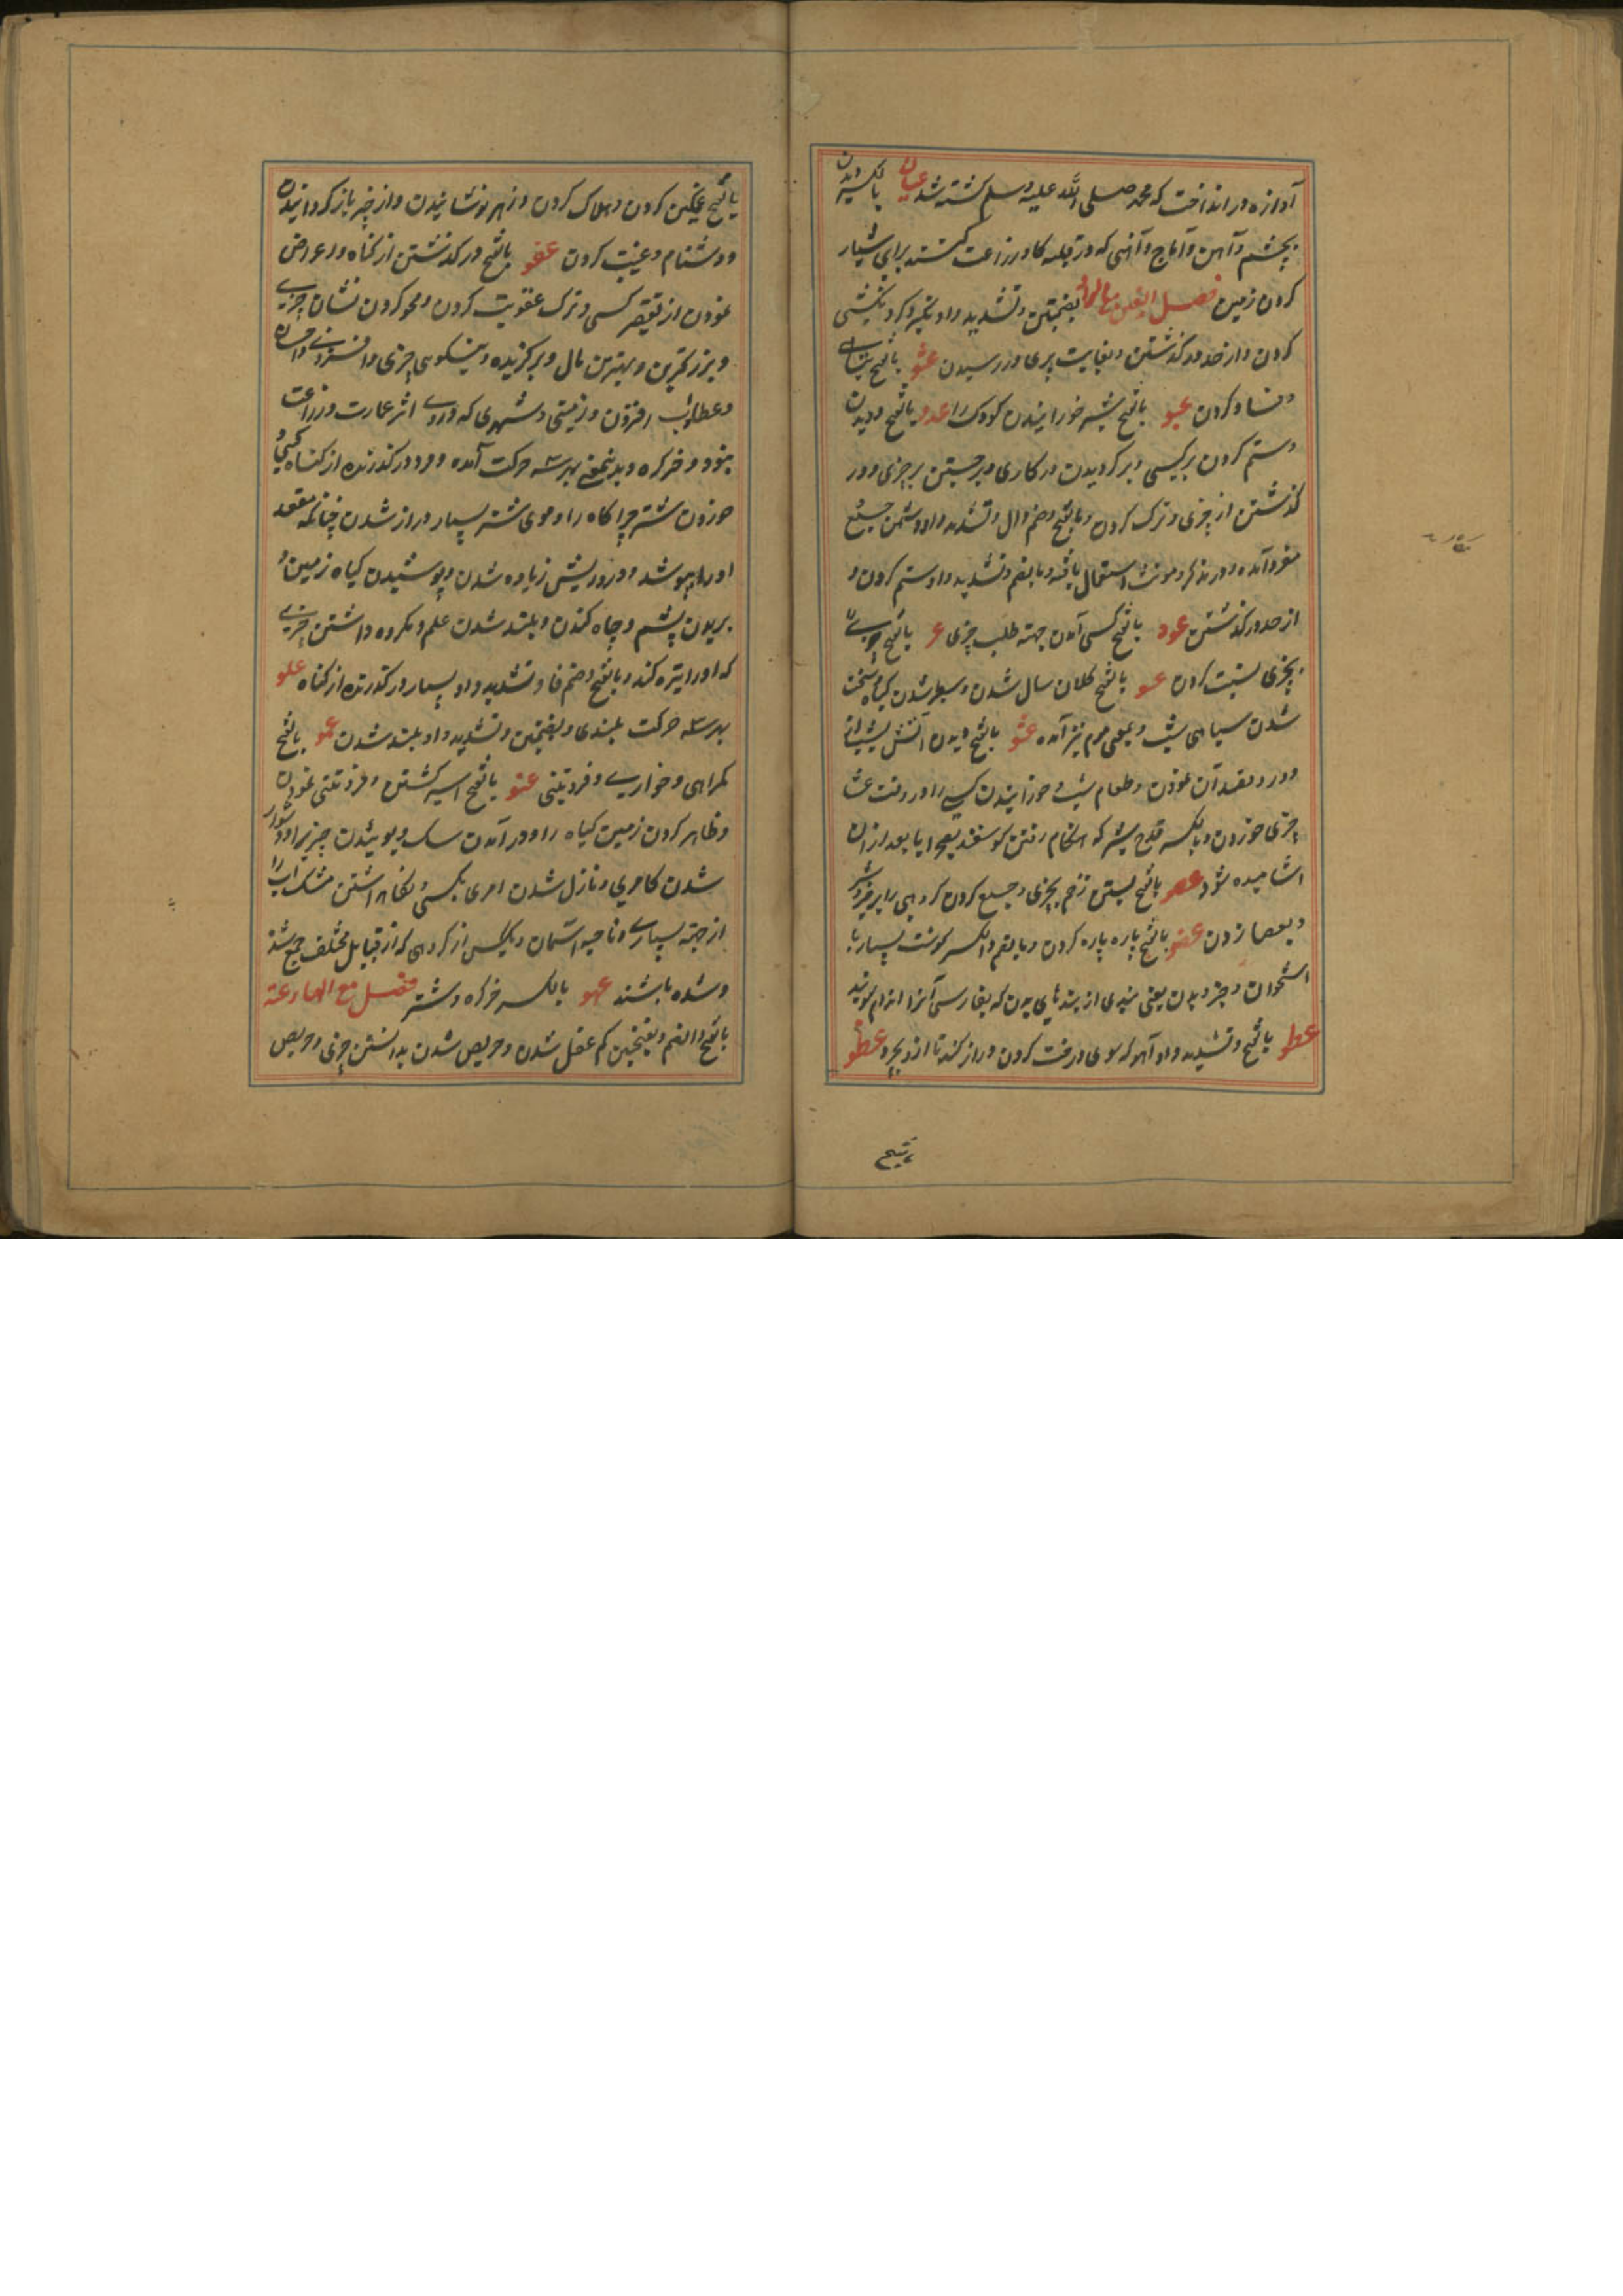 آوازه در انداخت که محمد صلی الله علیه وسلم کشته شد عیان بالکسر دیدن
بچشم و آهن و آماج و آهنی که در قلبه کا و زراعت کنند برای شیار
کردن زمین فصل العین مع الواو بضمتین و تشدید واو تکبر کردن
کردن و از حد در گذشتن و بغایت پیری در رسیدن عثو بالفتح
و فساد کردن عجو بالفتح شیر خورانیدن کودک را عدو بالفتح دویدن
و ستم کردن بر کسی و بر گردیدن در کاری و بر جستن بر چیزی و در
گذشتن از چیزی و ترک کردن و بالفتح و ضم دال و تشدید واو دشمن جمع
مفرد آمده و در مذکر و مونث استعمال یافته و بالضم و تشدید واو ستم کردن و
از حد در گذشتن عرو بالفتح کسی آمدن جهته طلب چیزی عزو بالفتح
بچیزی نسبت کردن عسو بالفتح کلان سال شدن و سطبر شدن گیاه و سخت
شدن سیاهی شب و بمعنی موم نیز آمده عشو بالفتح دیدن آتش شب از
دور و قصد آن نمودن و طعام شب خورانیدن کسی را و در وقت عشا
چیزی خوردن و بالکسر قدح شیر که هنگام رفتن گوسفند بصحرا یا بعد از ان
آشامیده شود عصو بالفتح بستن زخم بچیزی و جمع کردن گروهی را بر خیر و شر
و بعصا زدن عضو بالفتح پاره پاره کردن و بالضم و الکسر گوشت بسیار با
استخوان و جزو بدن یعنی بندی از بندهای بدن که بفارسی آنرا اندام گویند
عطو بالفتح و تشدید واو آهو که سوی درخت گردن دراز کند تا از و بچرد عظو
بالفتح غمگین کردن و هلاک کردن و زهر نوشانیدن و از خیر باز گردانیدن
و دشنام و غیبت کردن عفو بالفتح در گذشتن از گناه و در عوض
نمودن از تقصیر کسی و ترک عقوبت کردن و محو کردن نشان چیزی
و بزرگترین و بهترین مال و برگزیده و نیکویی چیزی و افزونی و احسان
و عطا و آب افزون و زمینی و شهری که در وی اثر عمارت و زراعت
نبود و خر کره و بدینمعنی بهر سه حرکت آمده و مرد در گذرنده از گناه کسی و
خوردن شتر چراگاه را و موی شتر بسیار دراز شدن چنانکه مقعد
او را بپوشد و در ریش زیاده شدن و پوشیدن گیاه زمین را و
بریدن پشم و چاه کندن و بلند شدن علم و مکروه داشتن چیزی
که او را تیره کند و بالفتح و ضم فا و تشدید واو بسیار در گذرنده از گناه علو
بهر سه حرکت بلندی و بضمتین و تشدید واو بلند شدن عمو بالفتح
گمراهی و خواری و فروتنی عنو بالفتح اسیر گشتن و فروتنی نمودن
و ظاهر کردن زمین گیاه را و در آمدن سک و بوئیدن چیزی را و دشوار
شدن کاری و نازل شدن امری بکسی و نگاهداشتن مشک آب را
از جهته بسیاری و ناحیه آسمان و یک کس از گروهی که از قبایل مختلف جمع شده
و شده باشند عهو بالکسر خر کره و شتر فصل مع الهاء عته
بالفتح و الضم و بفتحتین کم عقل شدن و حریص شدن بدانستن چیزی و حریص